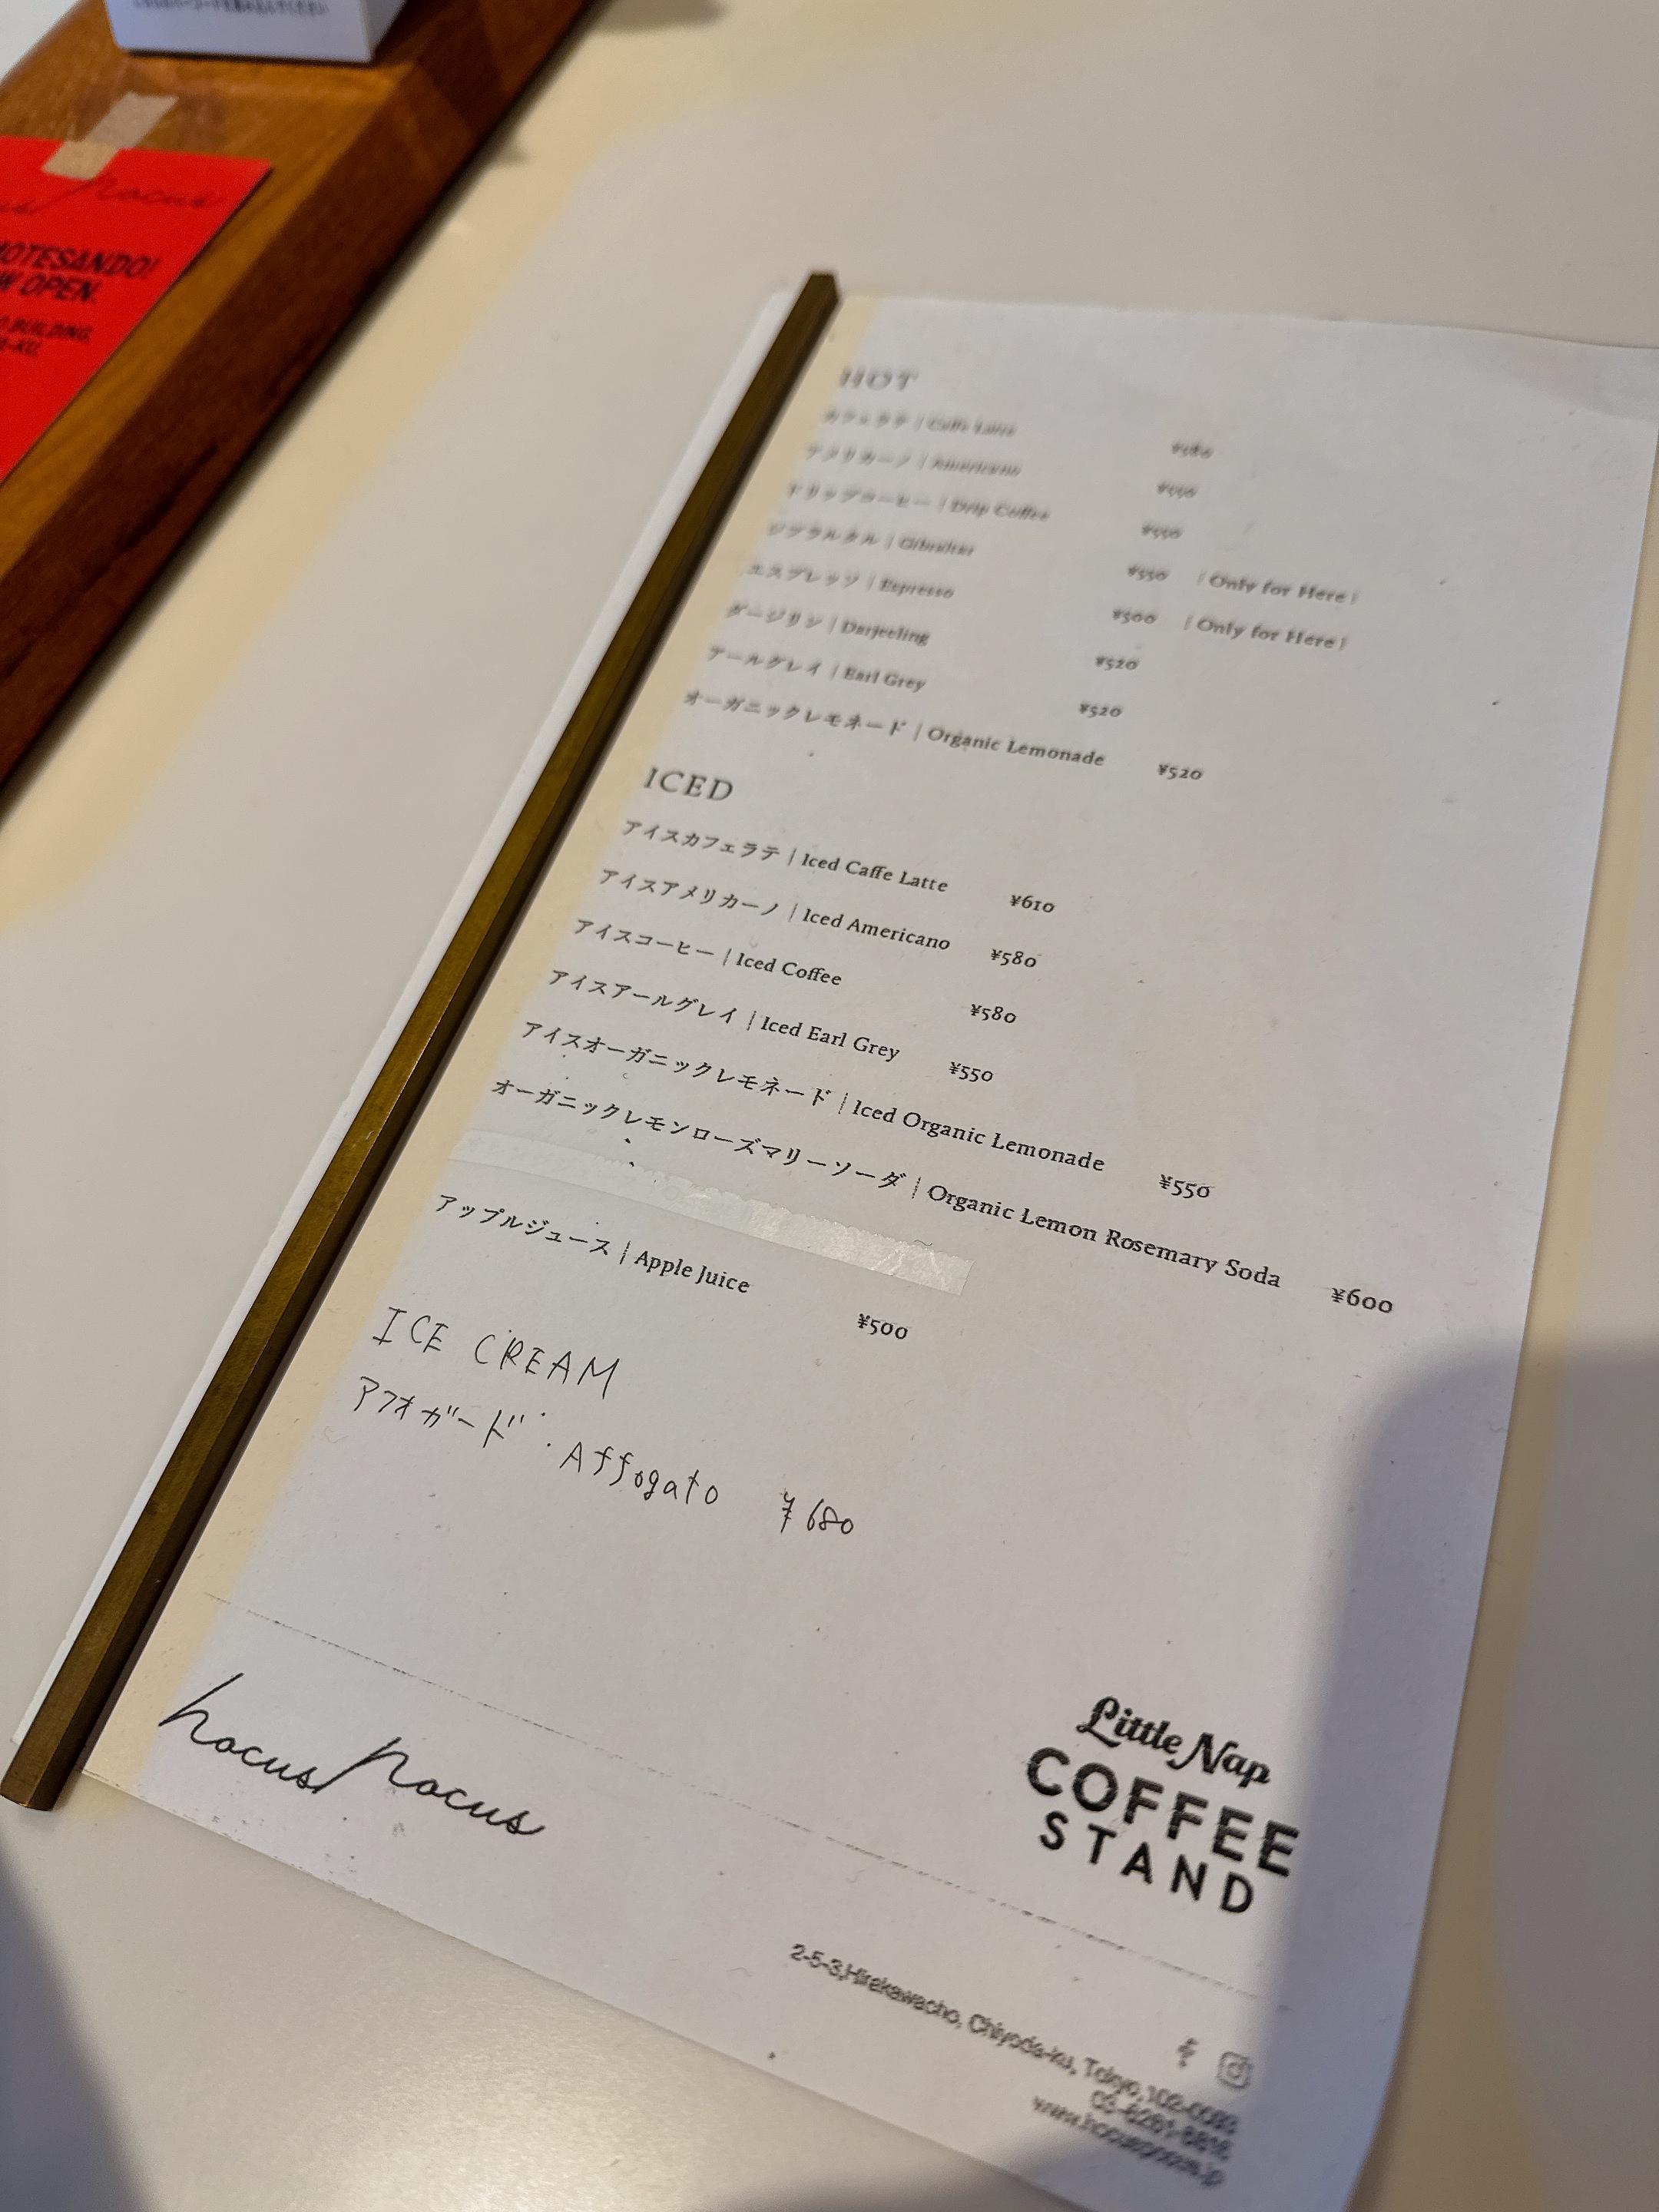 HOTESANDO!
W OPEN.
BUILDING,
-KU,
HOT
カフェラテ | Caffe Latte ¥580
アメリカーノ | Americano ¥550
ドリップコーヒー | Drip Coffee ¥550
ジブラルタル | Gibraltar ¥550 ( Only for Here )
エスプレッソ | Espresso ¥500 ( Only for Here )
ダージリン | Darjeeling ¥520
アールグレイ | Earl Grey ¥520
オーガニックレモネード | Organic Lemonade ¥520
ICED
アイスカフェラテ | Iced Caffe Latte ¥610
アイスアメリカーノ | Iced Americano ¥580
アイスコーヒー | Iced Coffee ¥580
アイスアールグレイ | Iced Earl Grey ¥550
アイスオーガニックレモネード | Iced Organic Lemonade ¥550
オーガニックレモンローズマリーソーダ | Organic Lemon Rosemary Soda ¥600
アップルジュース | Apple Juice ¥500
ICE CREAM
アフォガード : Affogato ¥680
hocus pocus
Little Nap
COFFEE
STAND
2-5-3,Hirakawacho, Chiyoda-ku, Tokyo,102-0093
03-6261-6816
www.hocuspocus.jp